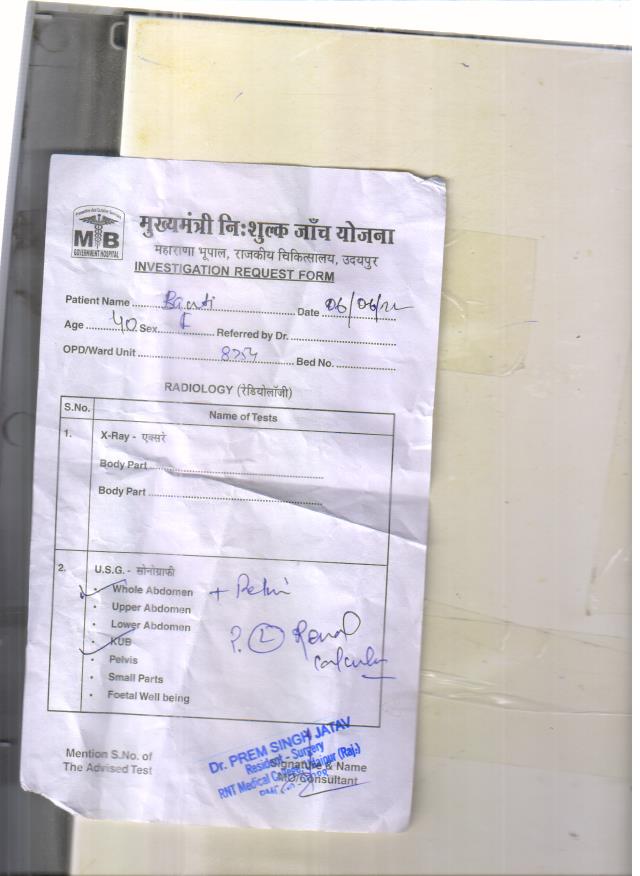 MB
GOVERNMENT HOSPITAL
मुख्यमंत्री निःशुल्क जाँच योजना
महाराणा भूपाल, राजकीय चिकित्सालय, उदयपुर
INVESTIGATION REQUEST FORM
Patient Name Banti Date 06/06/22
Age 40 Sex F Referred by Dr.
OPD/Ward Unit Bed No.
RADIOLOGY (रेडियोलॉजी)
S.No. Name of Tests
1. X-Ray - एक्सरे
Body Part
Body Part
2. U.S.G. - सोनोग्राफी
• Whole Abdomen + Pelvi
• Upper Abdomen
• Lower Abdomen
• KUB ?. (L) Renal
• Pelvis calculi
• Small Parts
• Foetal Well being
Mention S.No. of
The Advised Test
Dr. PREM SINGH JATAV
Resident - Surgery
RNT Medical College, Udaipur (Raj.)
Signature & Name
MO/Consultant